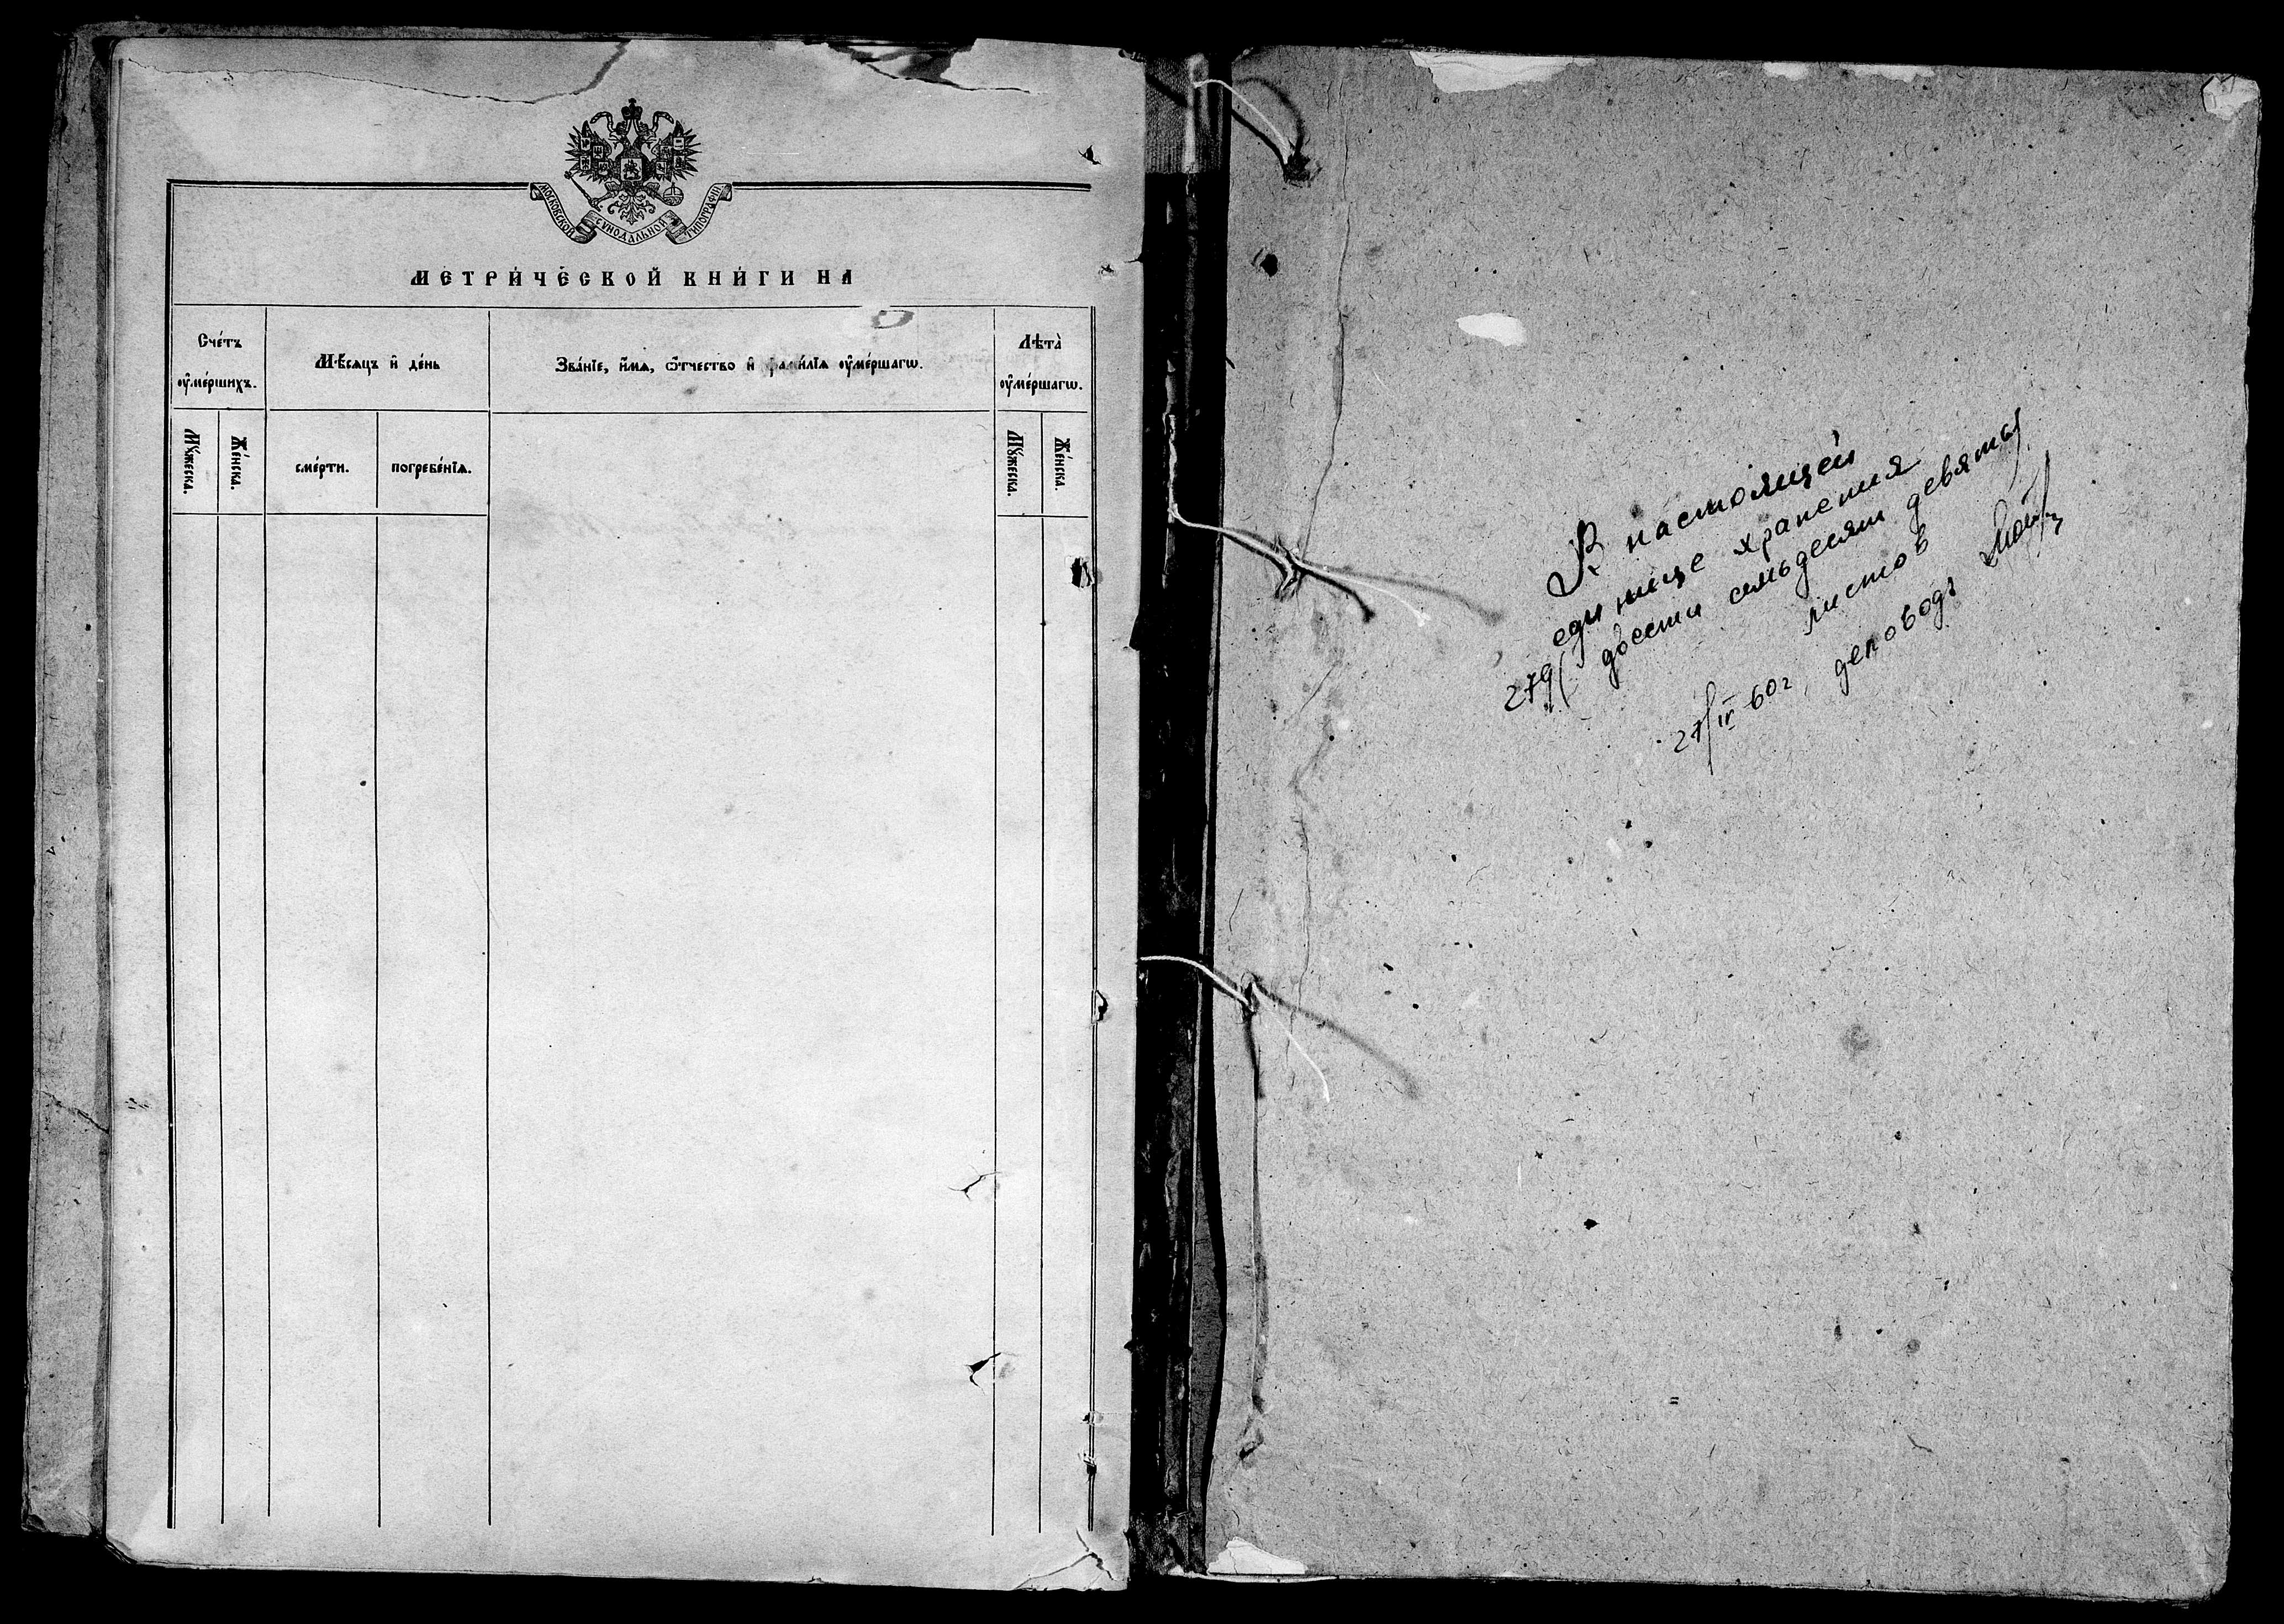 МОСКОВСКОЙ СѴНОДАЛЬНОЙ ТИПОГРАФІИ
МЕТРИ́ЧЕСКОЙ КНИ́ГИ НА
Сче́тъ ᲂу҆ме́ршихъ.
Мѣ́сяцъ и҆ де́нь
Зва́нїе, и҆́мѧ, ѻ҆́тчество и҆ фами́лїѧ ᲂу҆ме́ршагѡ.
Лѣта̀ ᲂу҆ме́ршагѡ.
Мꙋ́жеска.
Же́нска.
сме́рти.
погребе́нїѧ.
Мꙋ́жеска.
Же́нска.
В настоящей
единице хранения
279 (двести семьдесят девять)
листов
27/IV 60г. деловодъ